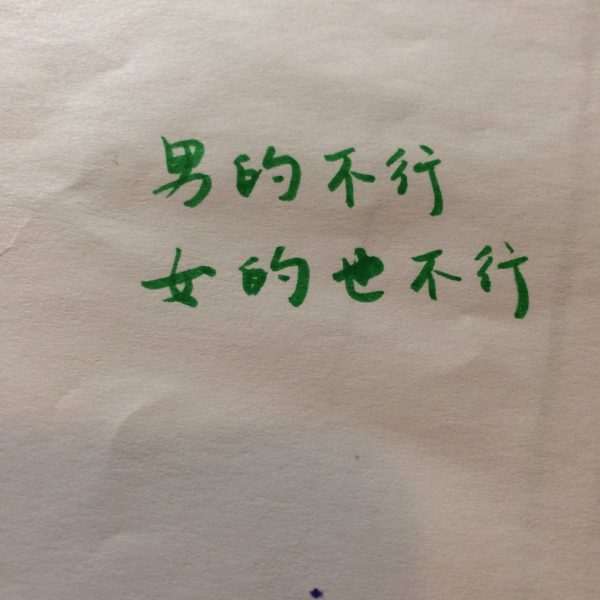 男的不行
女的也不行